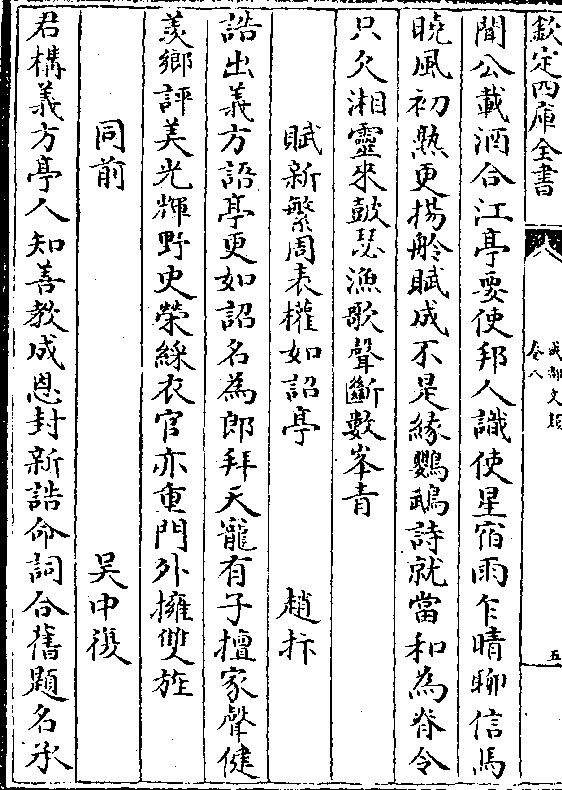 欽定四庫全書
成都文類
卷八
五
聞公載酒合江亭要使邦人識使星宿雨乍晴聊信馬
曉風初熟更揚舲賦成不是緣鸚鵡詩就當和為脊令
只欠湘靈來鼓瑟漁歌聲斷數峯青
賦新繁周表權如詔亭　趙抃
誥出義方語亭更如詔名為郎拜天寵有子擅家聲健
羨鄉評美光輝野史榮綵衣官亦重門外擁雙旌
同前　吳中復
君構義方亭人知善教成恩封新誥命詞合舊題名承